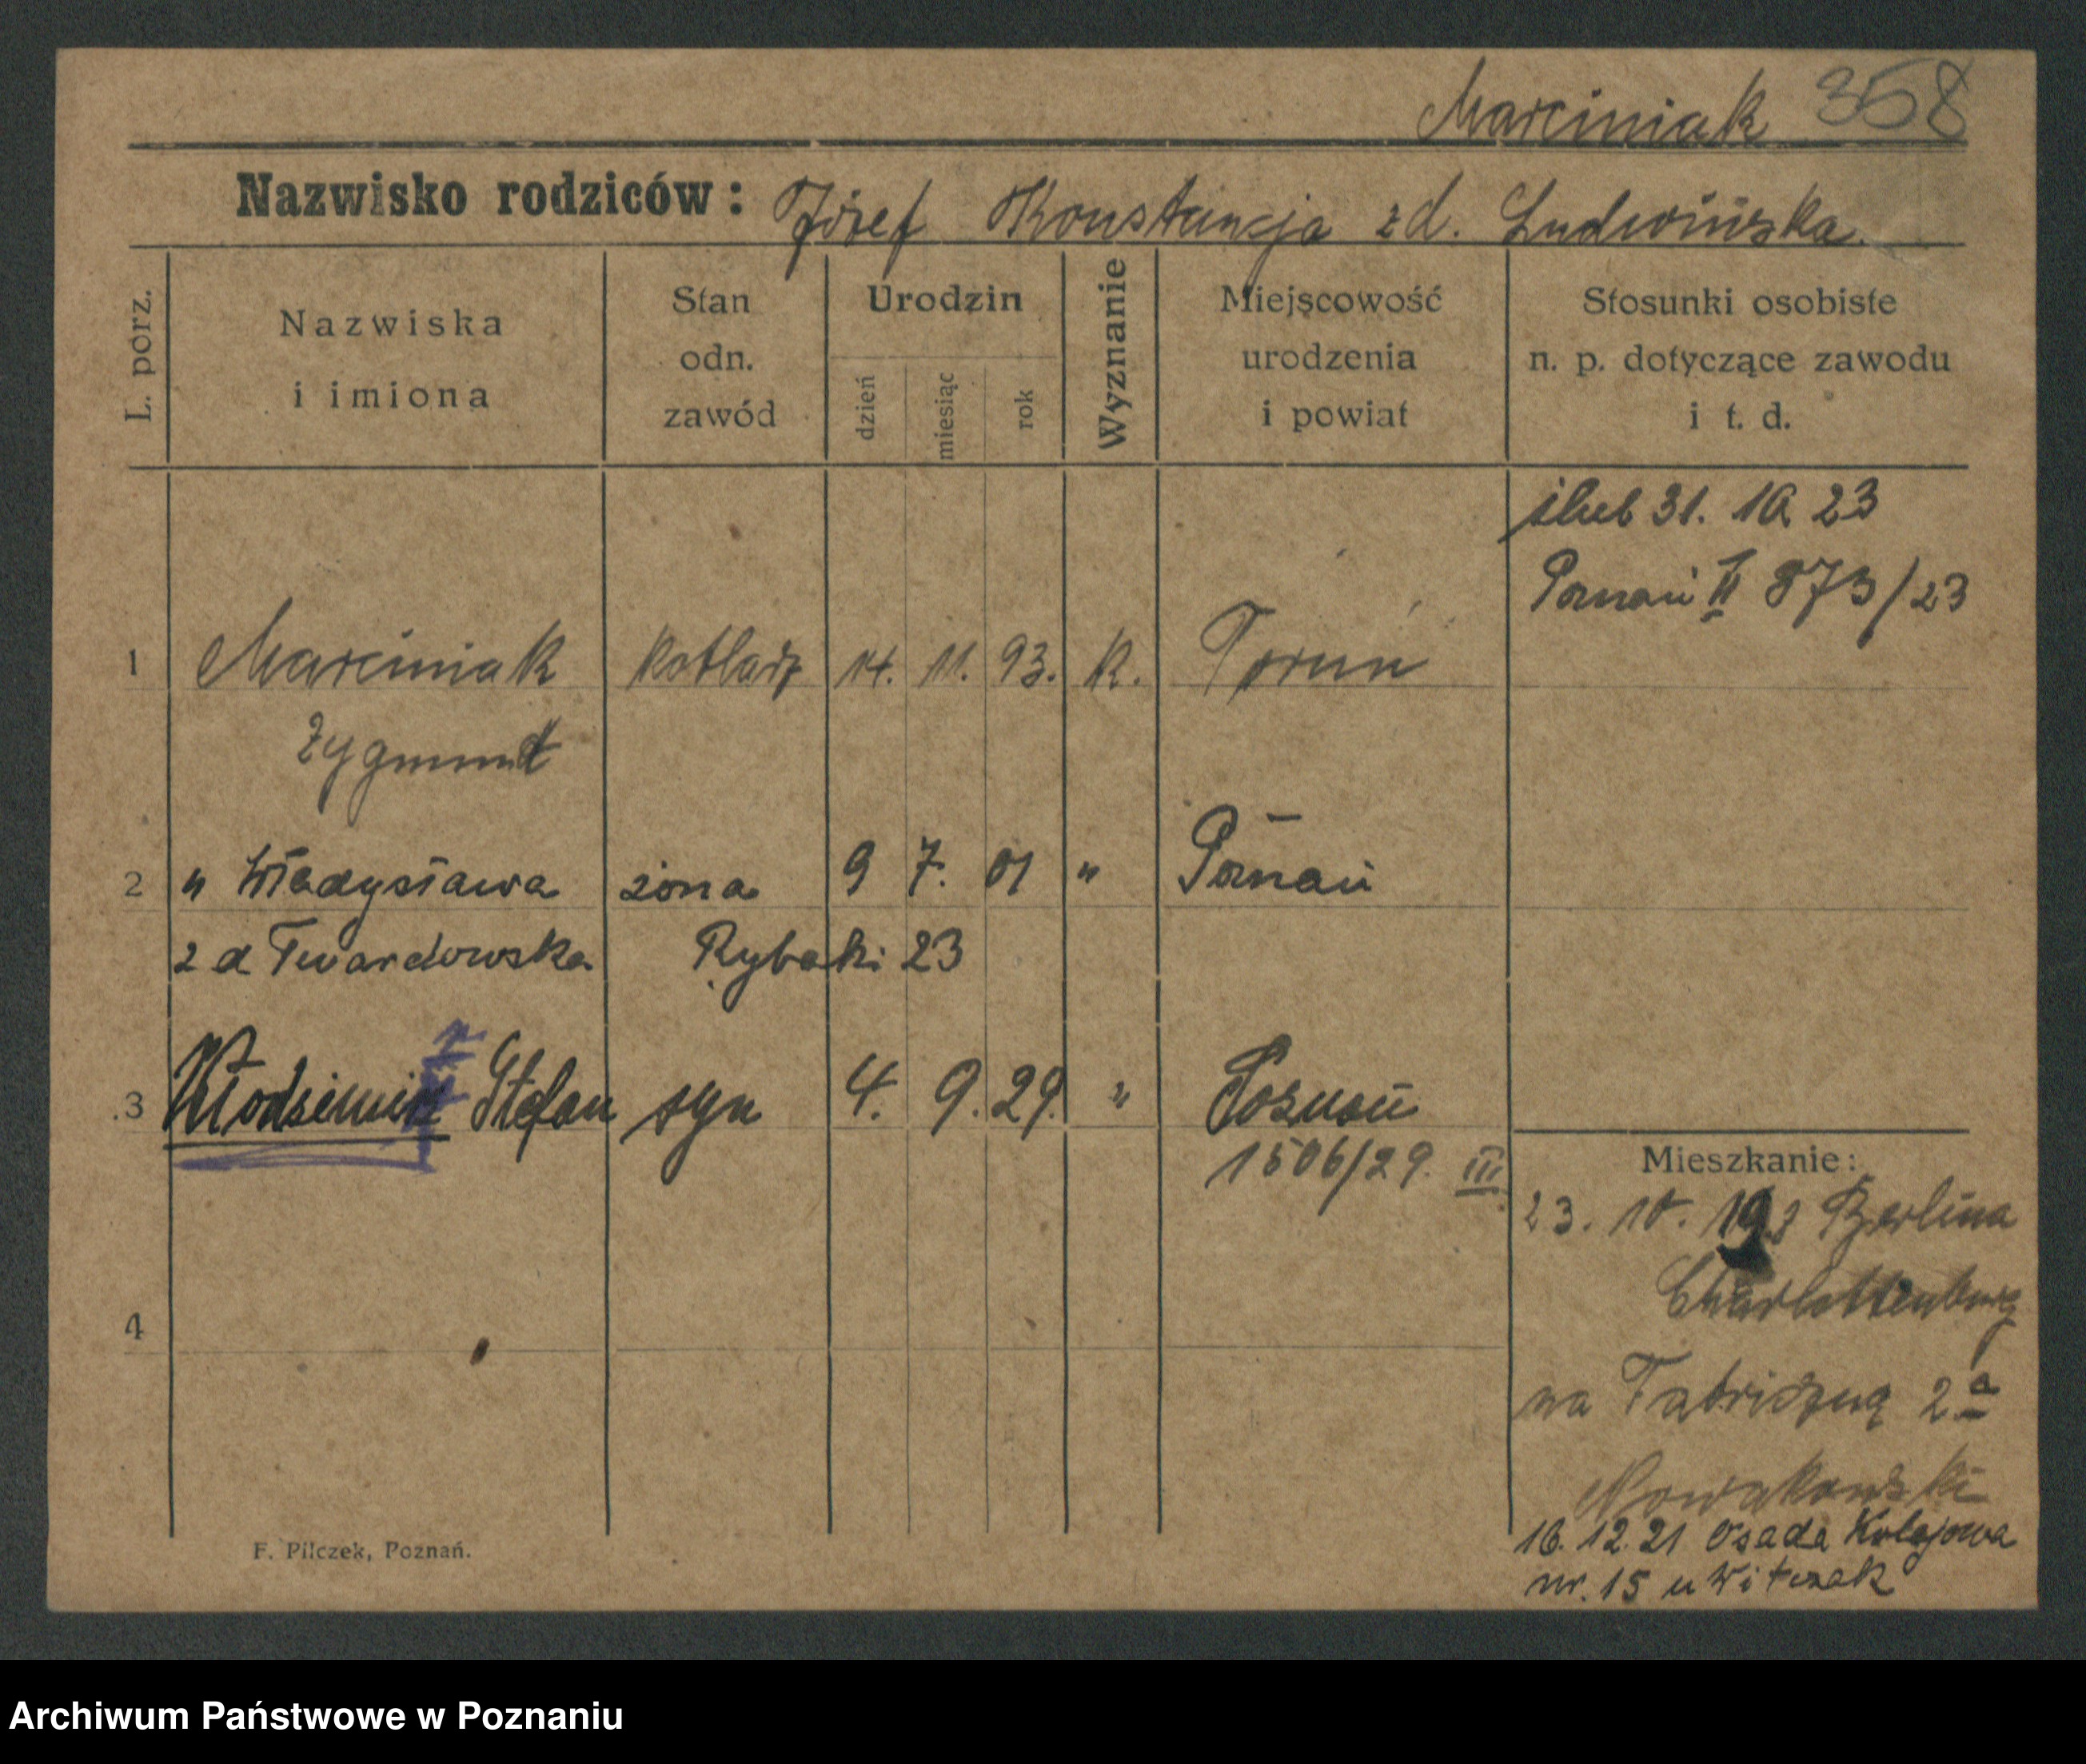 Marciniak 358
Nazwisko rodziców: Józef Konstancja zd. Ludwińska.
L. porz.
Nazwiska
i imiona
Stan
odn.
zawód
Urodzin
dzień
miesiąc
rok
Wyznanie
Miejscowość
urodzenia
i powiat
Stosunki osobiste
n. p. dotyczące zawodu
i t. d.
ślub 31. 10 23
Poznań II 873/23
1 Marciniak kotlarz 14. 11. 93. k. Toruń
Zygmunt
2 " Władysława żona 9 7. 01 " Poznań
z d Twardowska Rybaki 23
3 Włodzimierz Stefan syn 4. 9. 29. " Poznań
1506/29. III
Mieszkanie:
23. 10. Berlina
Charlottenburg
na Fabriczną 2a
Nowakowski
4
16. 12. 21 Osada Kolejowa
nr. 15 u Witczak
F. Pilczek, Poznań.
Archiwum Państwowe w Poznaniu